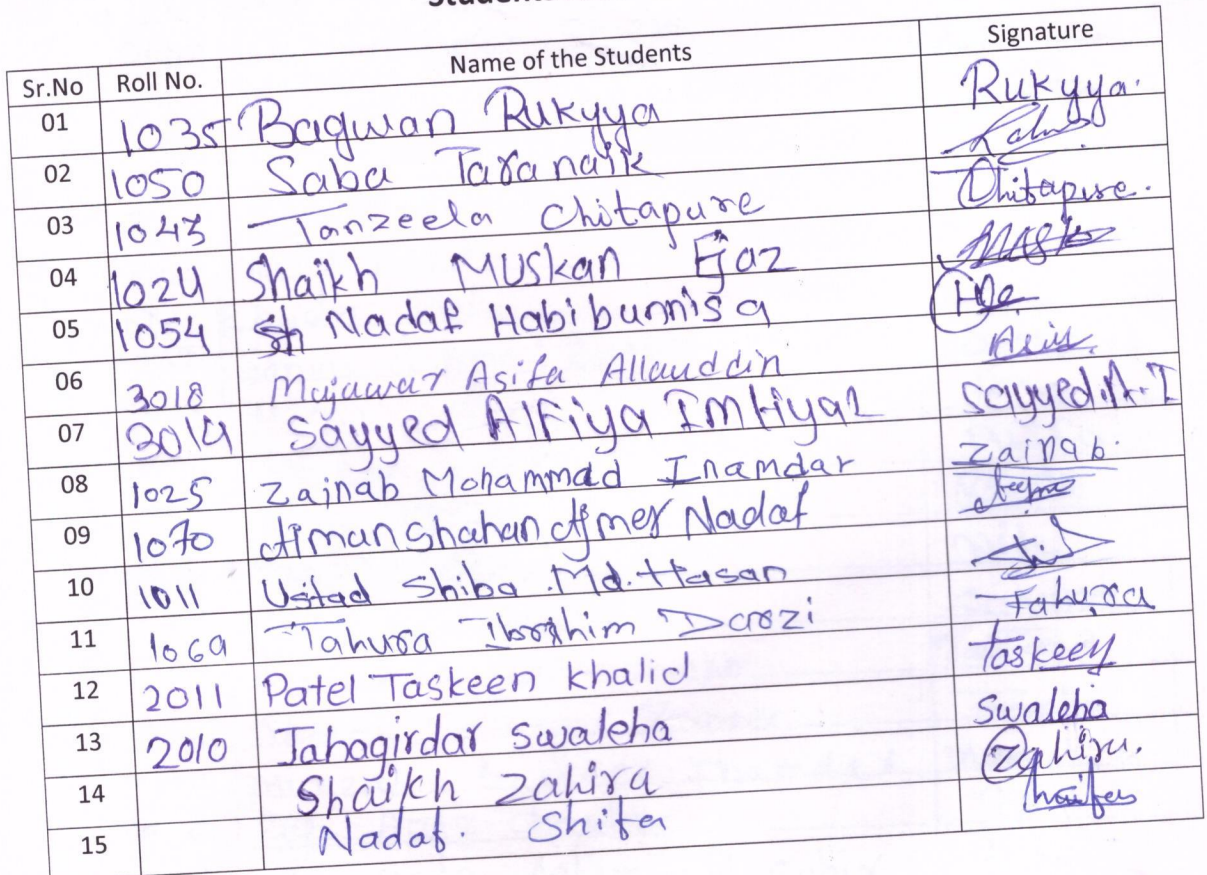 Student
Sr.No Roll No. Name of the Students Signature
01 1035 Bagwan Rukyya Rukyya.
02 1050 Saba Taranaik
03 1043 Tanzeela Chitapure Chitapure.
04 1024 Shaikh MUSkan Ejaz
05 1054 Nadaf Habibunnisa
06 3018 Mujawar Asifa Allauddin
07 3014 Sayyed Alfiya Imtiyaz Sayyed.A.I
08 1025 Zainab Mohammad Inamdar Zainab.
09 1070 Nadaf
10 1011 Ustad Shiba Md.Hasan
11 1069 Tahura Ibrahim Darzi Tahura
12 2011 Patel Taskeen khalid Taskeen
13 2010 Jahagirdar Swaleha Swaleha
14 Shaikh Zahira Zahira.
15 Nadaf. Shifa